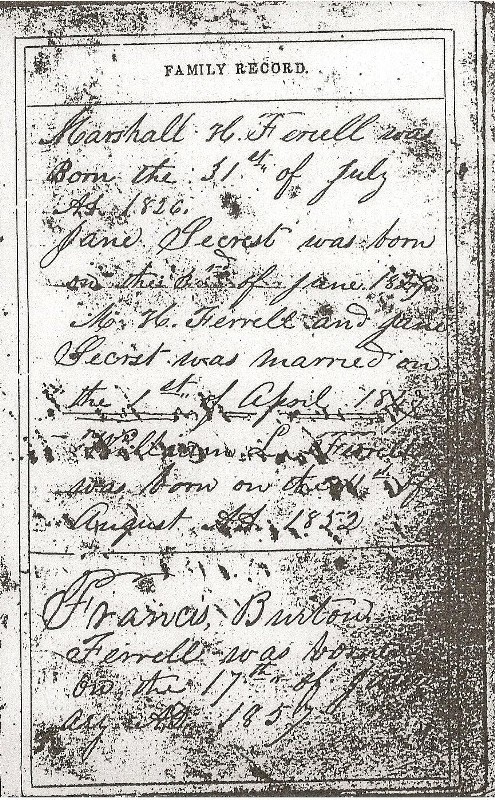 FAMILY RECORD.
Marshall H. Ferrell was
Born the 31st of July
AD. 1826.
Jane Secrest was born
on the 3rd of June
M. H. Ferrell and Jane
Secrst was married on
the 1st of April
William L. Ferrell
was born on the 11th of
August AD. 1852
Francis Burton
Ferrell was born
on the 17th of
ary AD 1857